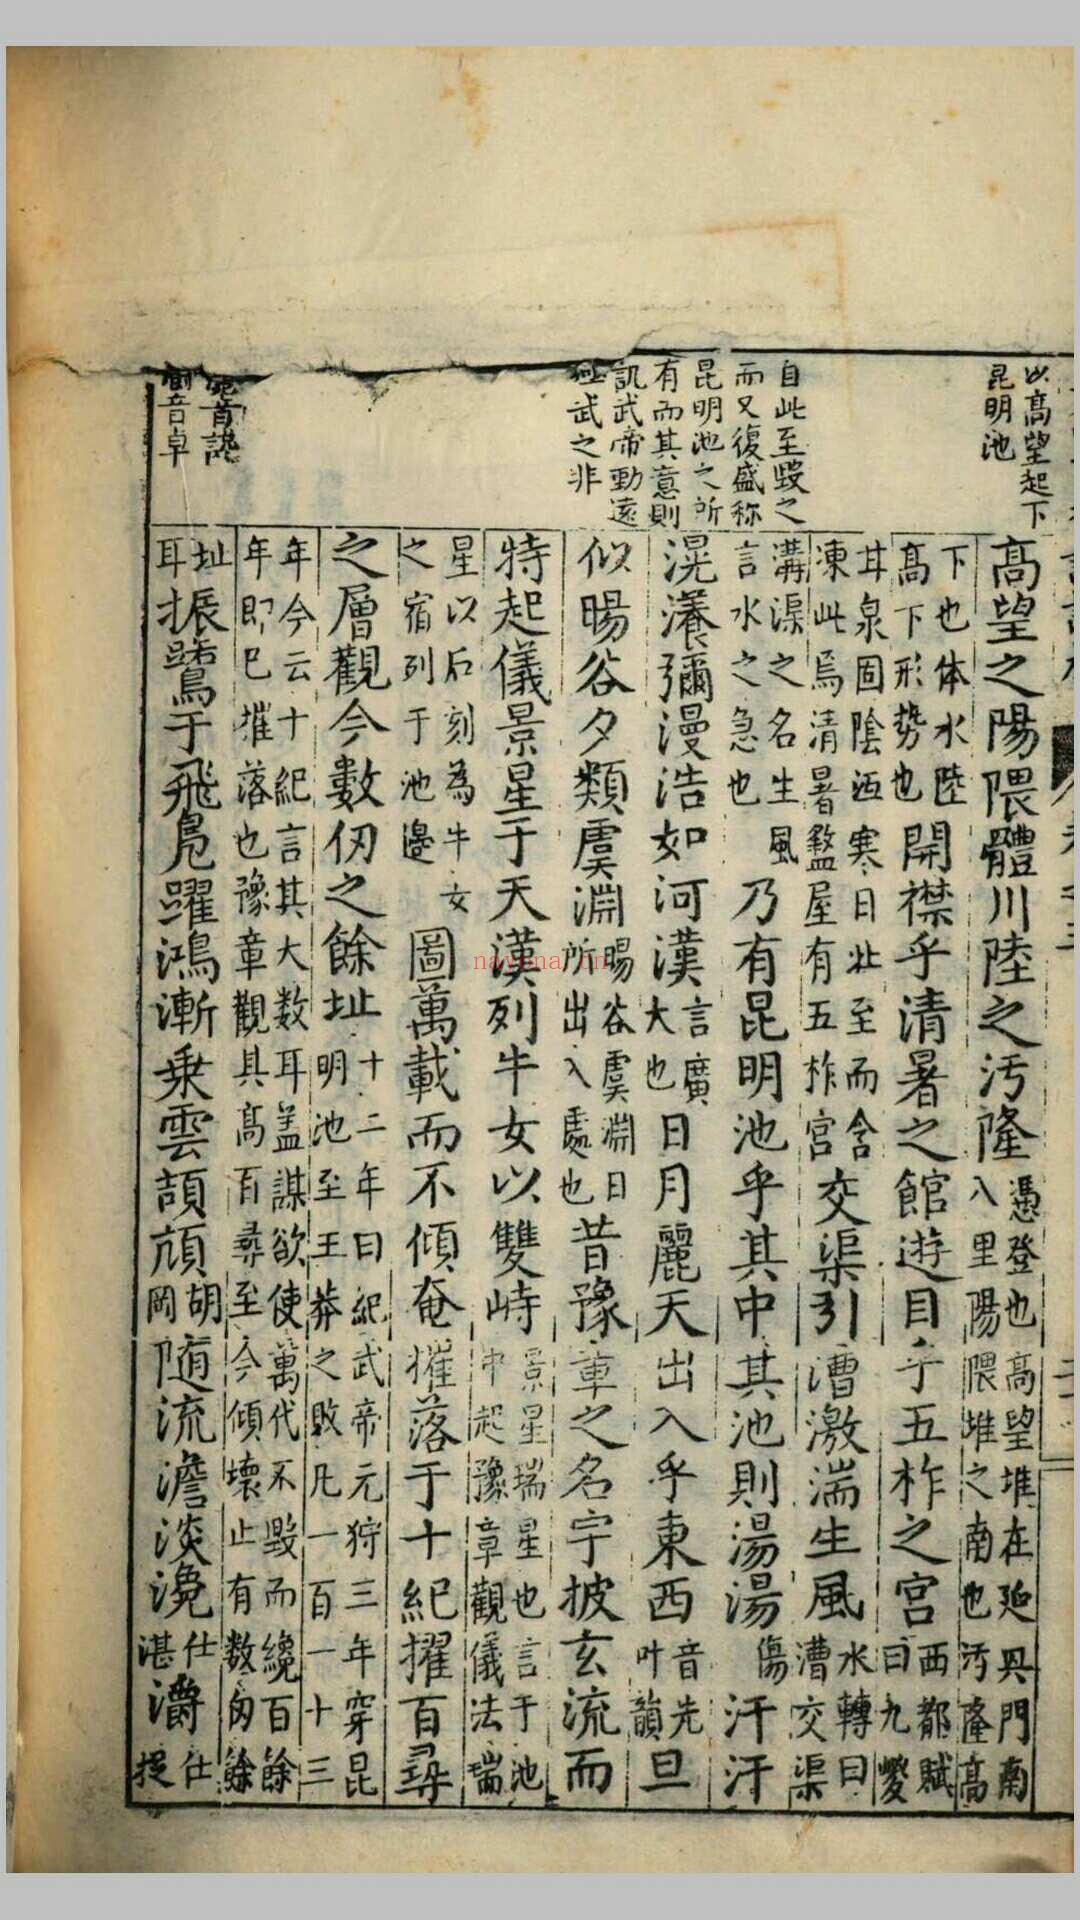 以高望起下
昆明池
自此至毀之
而又復盛称
昆明池之所
有而其意則
訊武帝動遠
武之非
音卓
高望之陽隈體川陸之汚隆憑登也高望堆在延興門南八里陽隈堆之南也汚隆高
下也体水陸高下形势也開襟乎清暑之館遊目乎五柞之宮西都賦曰九嵕
甘泉固陰沍寒日北至而含凍此焉清暑盩屋有五柞宮交渠引漕激湍生風水轉曰漕交渠
溝渠之名生風言水之急也乃有昆明池乎其中其池則湯湯傷汗汗
滉瀁彌漫浩如河漢言廣大也日月麗天出入乎東西音先叶韻旦
似暘谷夕類虞淵暘谷虞淵日所出入處也昔豫章之名宇披玄流而
特起儀景星于天漢列牛女以雙峙景星瑞星也言于池中起豫章觀儀法瑞
星以后刻為牛女之宿列于池邊圖萬載而不傾奄摧落于十紀擢百尋
之層觀今數仞之餘址十二年曰紀武帝元狩三年穿昆明池至王莽之敗凡一百一十三
年今云十紀言其大数耳盖謀欲使萬代不毀而纔百餘年即已摧落也豫章觀具高百尋至今傾壞止有数匆餘
址耳振鷺于飛鳧躍鴻漸乗雲頡頏胡岡随流澹淡瀺仕湛灂仕捉